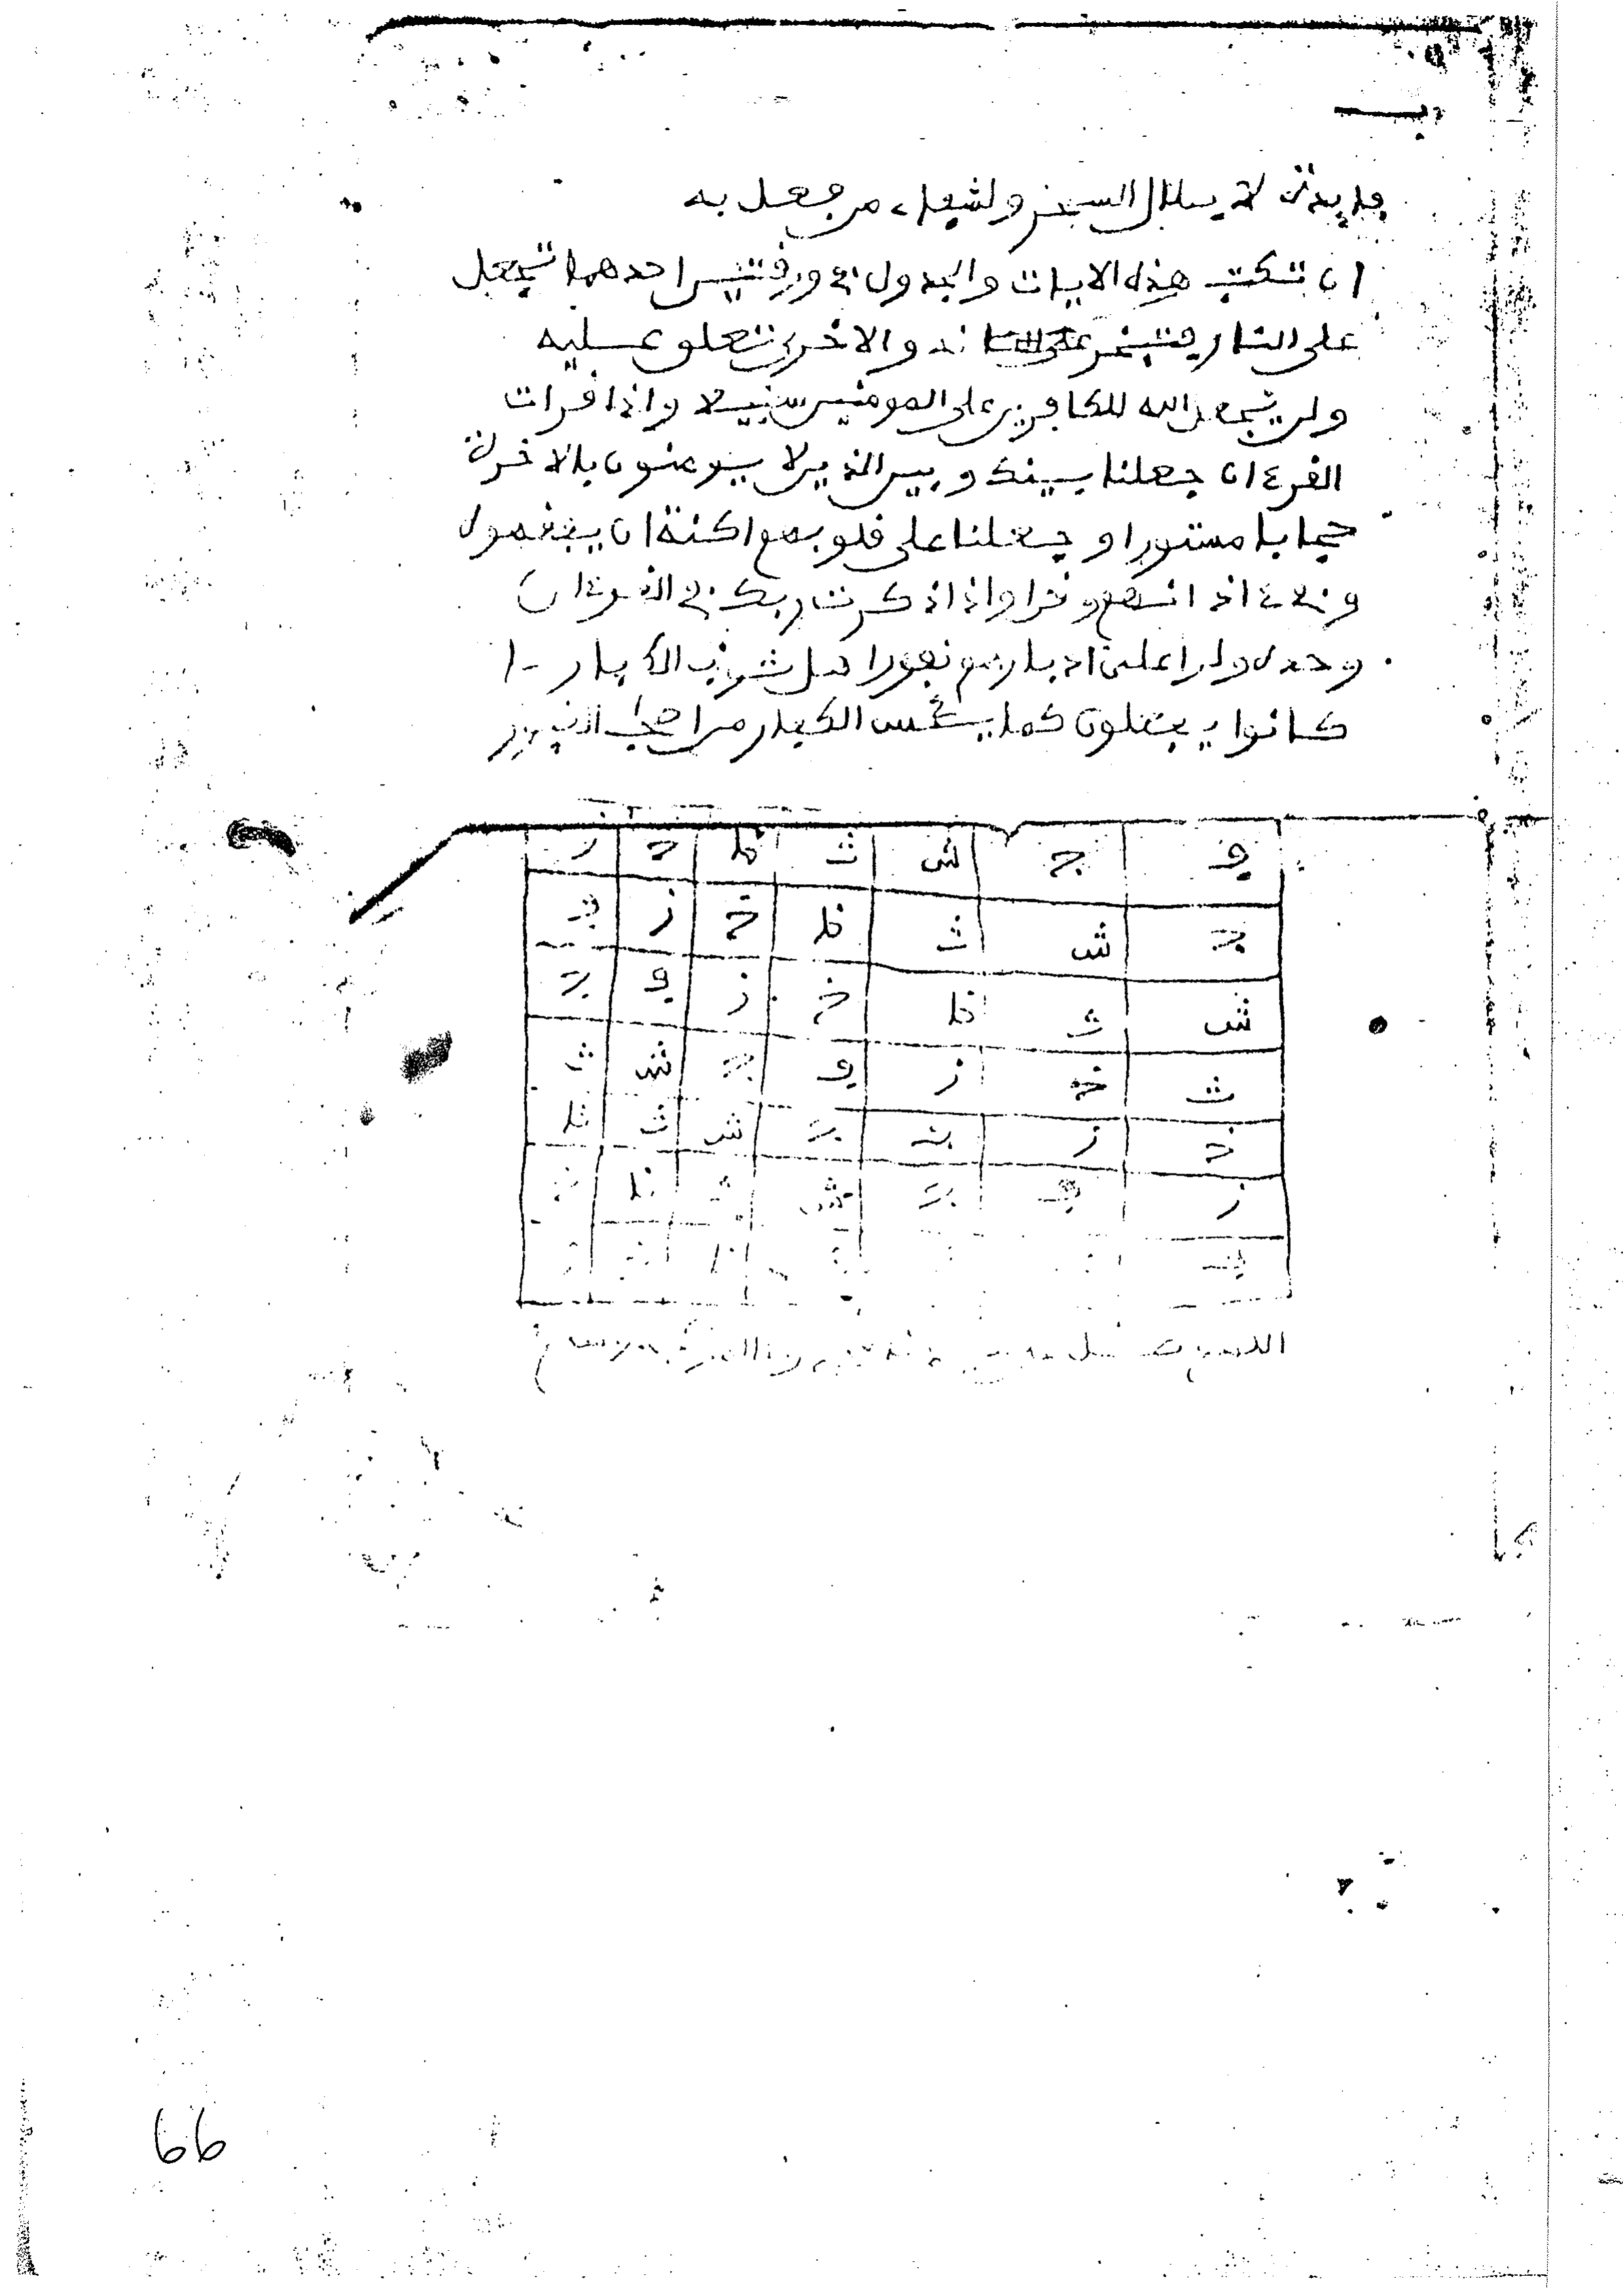 فايدة لابطال السحر ولشفاء من جعل به
ان تكتب هذه الايات والجدول في ورقتين احدهما تجعل
على النار والاخرى تعلق عليه
ولن يجعل الله للكافرين على المومنين سبيلا واذا قرات
القرءان جعلنا بينك وبين الذين لا يومنون بالاخرة
حجابا مستورا وجعلنا على قلوبهم اكنة ان يفقهوه
وفي ءاذانهم وقرا واذا ذكرت ربك في القرءان
وحده ولوا على ادبارهم نفورا هل ثوب الكفار ما
كانوا يفعلون كما يئس الكفار من اصحاب القبور
ف ج ش ث ظ خ ز
ج ش ث ظ خ ز ف
ش ث ظ خ ز ف ج
ث خ ز ف ج ش ث
خ ز ف ج ش ث ظ
ز ف ج ش ث ظ خ
ف
اللهم
66